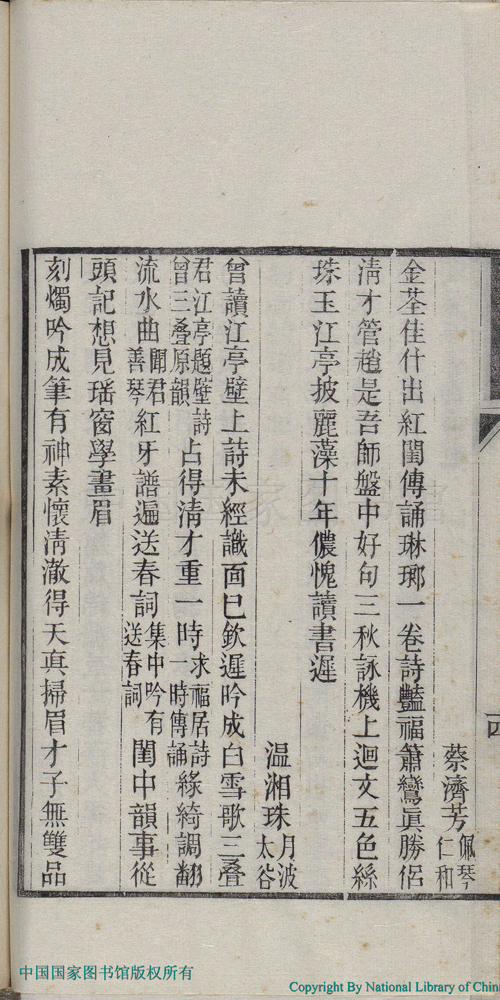 四
蔡濟芳佩琴仁和
金荃佳什出紅閨傳誦琳瑯一卷詩豔福簫鸞眞勝侶
淸才管趙是吾師盤中好句三秋詠機上迴文五色絲
珠玉江亭披麗藻十年儂愧讀書遲
温湘珠月波太谷
曾讀江亭壁上詩未經識面已欽遲吟成白雪歌三疊
君江亭題壁詩曾三疊原韻占得淸才重一時求福居詩一時傳誦綠綺調翻
流水曲聞君善琴紅牙譜遍送春詞集中吟有送春詞閨中韻事從
頭記想見瑤窗學畫眉
刻燭吟成筆有神素懷淸澈得天眞掃眉才子無雙品
中国国家图书馆版权所有
Copyright By National Library of Chin